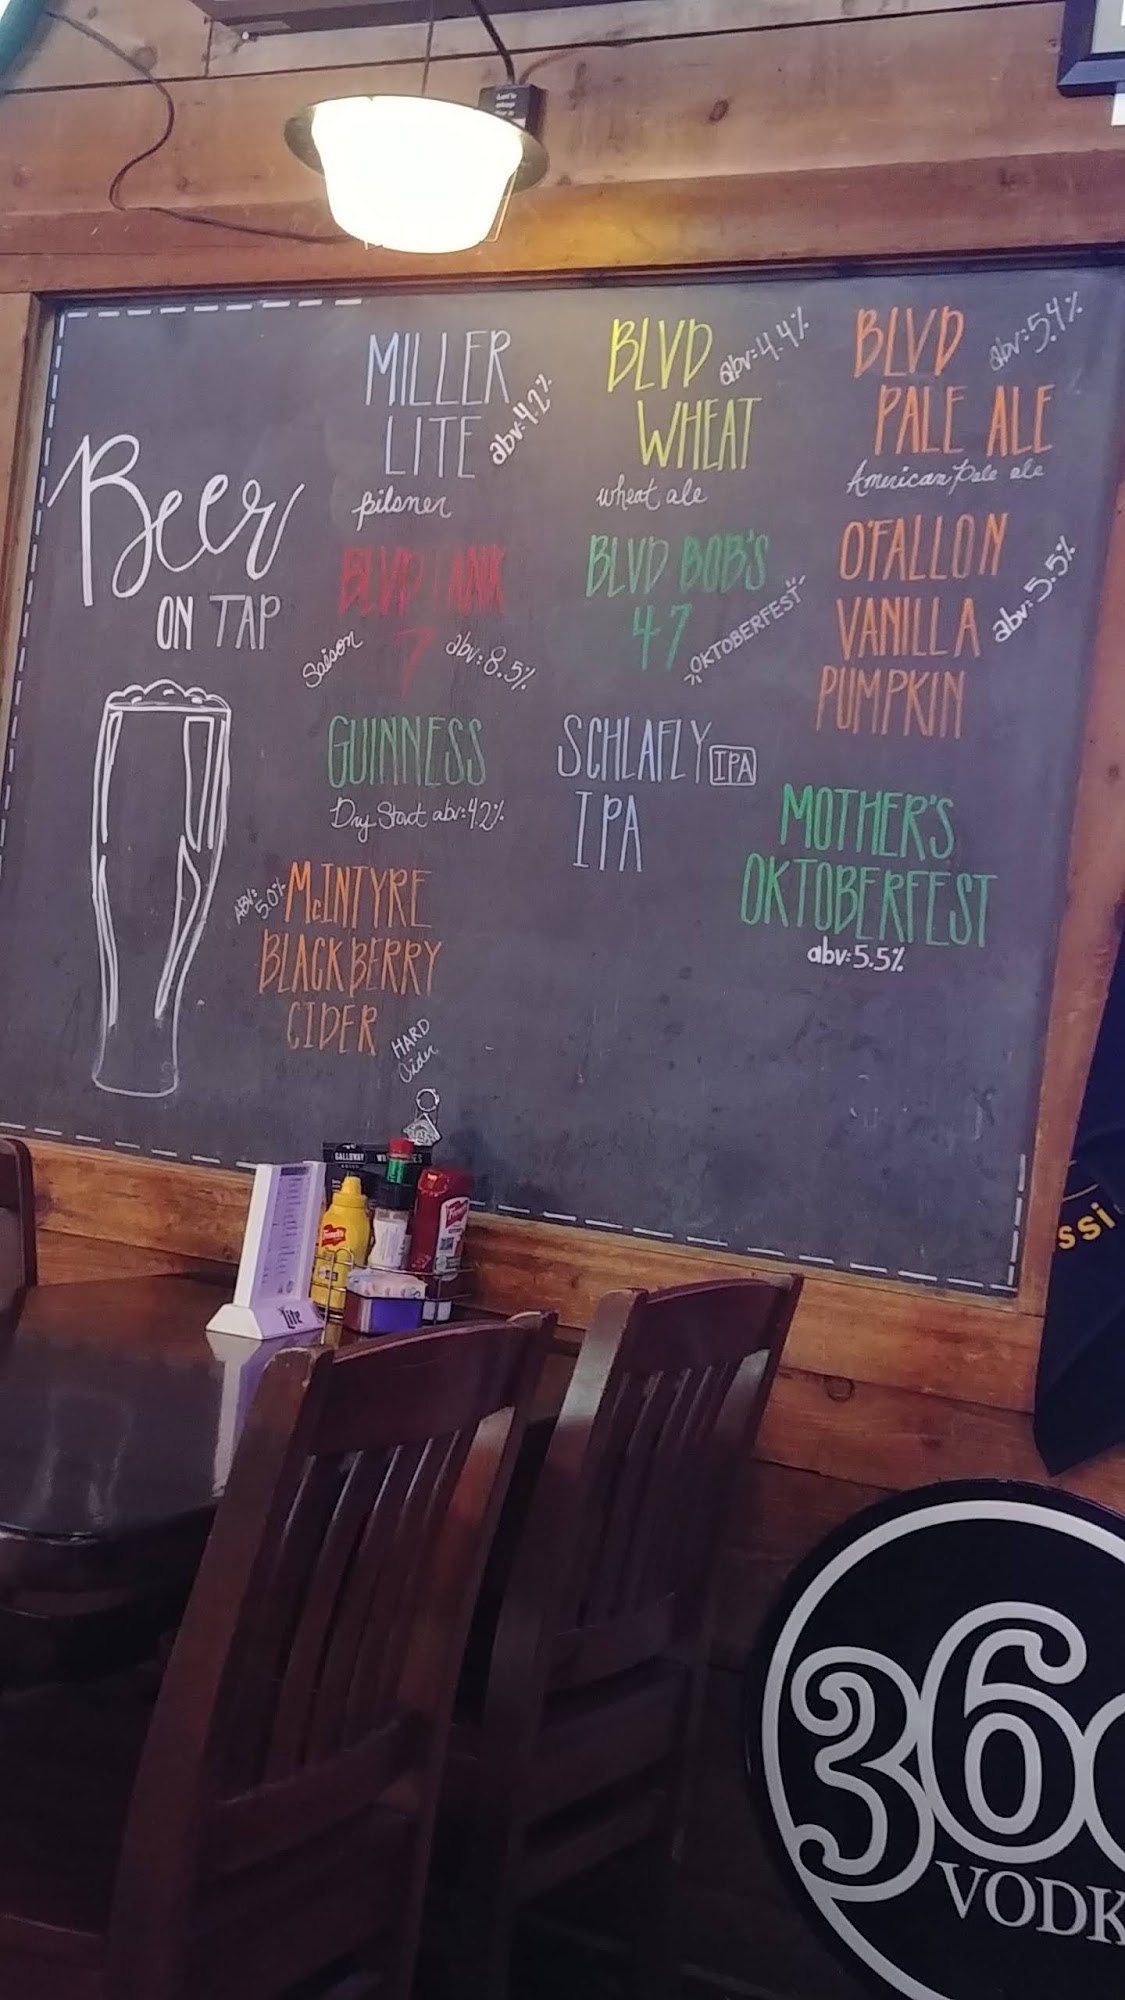 Beer
ON TAP
MILLER
LITE
abv:4.2%
pilsner
BLVD
abv:4.4%
WHEAT
wheat ale
BLVD
abv:5.4%
PALE ALE
American Pale ale
BLVD TANK
7
Saison
abv:8.5%
BLVD BOB'S
47
OKTOBERFEST
O'FALLON
VANILLA
PUMPKIN
abv:5.5%
GUINNESS
Dry Stout abv:4.2%
SCHLAFLY
IPA
IPA
MOTHER'S
OKTOBERFEST
abv:5.5%
ABV:
5.0%
McINTYRE
BLACKBERRY
CIDER
HARD
Cider
GALLOWAY
French's
Lite
ssi
360
VODK